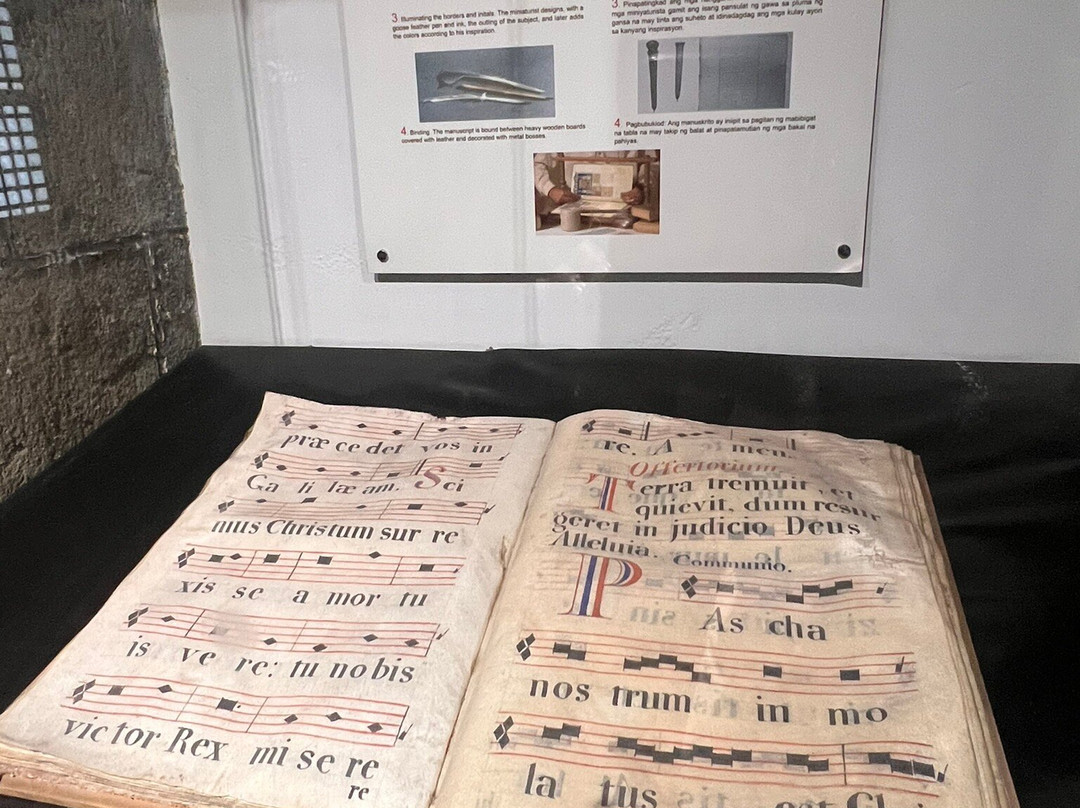 3 Illuminating the borders and initals. The miniaturist designs, with a
goose feather pen and ink, the outling of the subject, and later adds
the colors according to his inspiration.
4. Binding. The manuscript is bound between heavy wooden boards
covered with leather and decorated with metal bosses.
3 Pinapatingkad ang mga
mga miniyaturista gamit ang isang pansulat ng gawa sa pluma ng
gansa na may tinta ang suheto at idinadagdag ang mga kulay ayon
sa kanyang inspirasyon.
4 Pagbubukiod: Ang manuskrito ay iniipit sa pagitan ng mabibigat
na tabla na may takip ng balat at pinapalamutian ng mga bakal na
pahiyas.
præ ce det vos in
Ga li læ am. Sci
mus Christum sur re
xis se a mor tu
is ve re: tu nobis
vic tor Rex mi se re
re
re. A men.
Offertorium.
Terra tremuit, et
quievit, dum resur
geret in judicio Deus
Alleluia. Communio.
PAs cha
nos trum in mo
la tus est